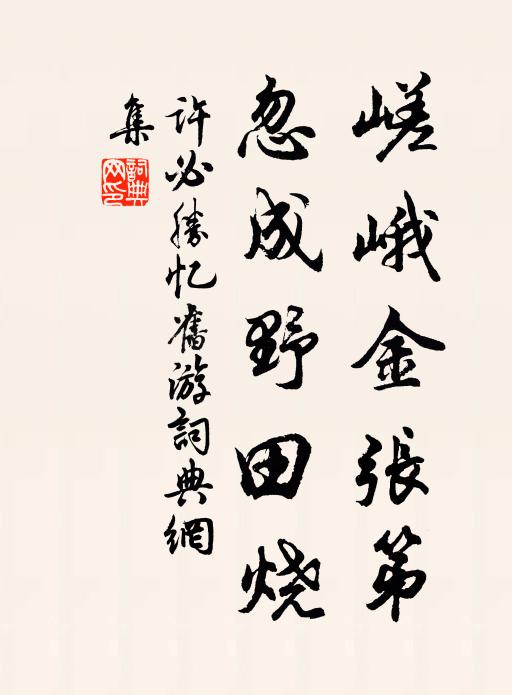 嵯峨金張第
忽成野田烧
許必勝忆舊游詞典網
集
詞典網印